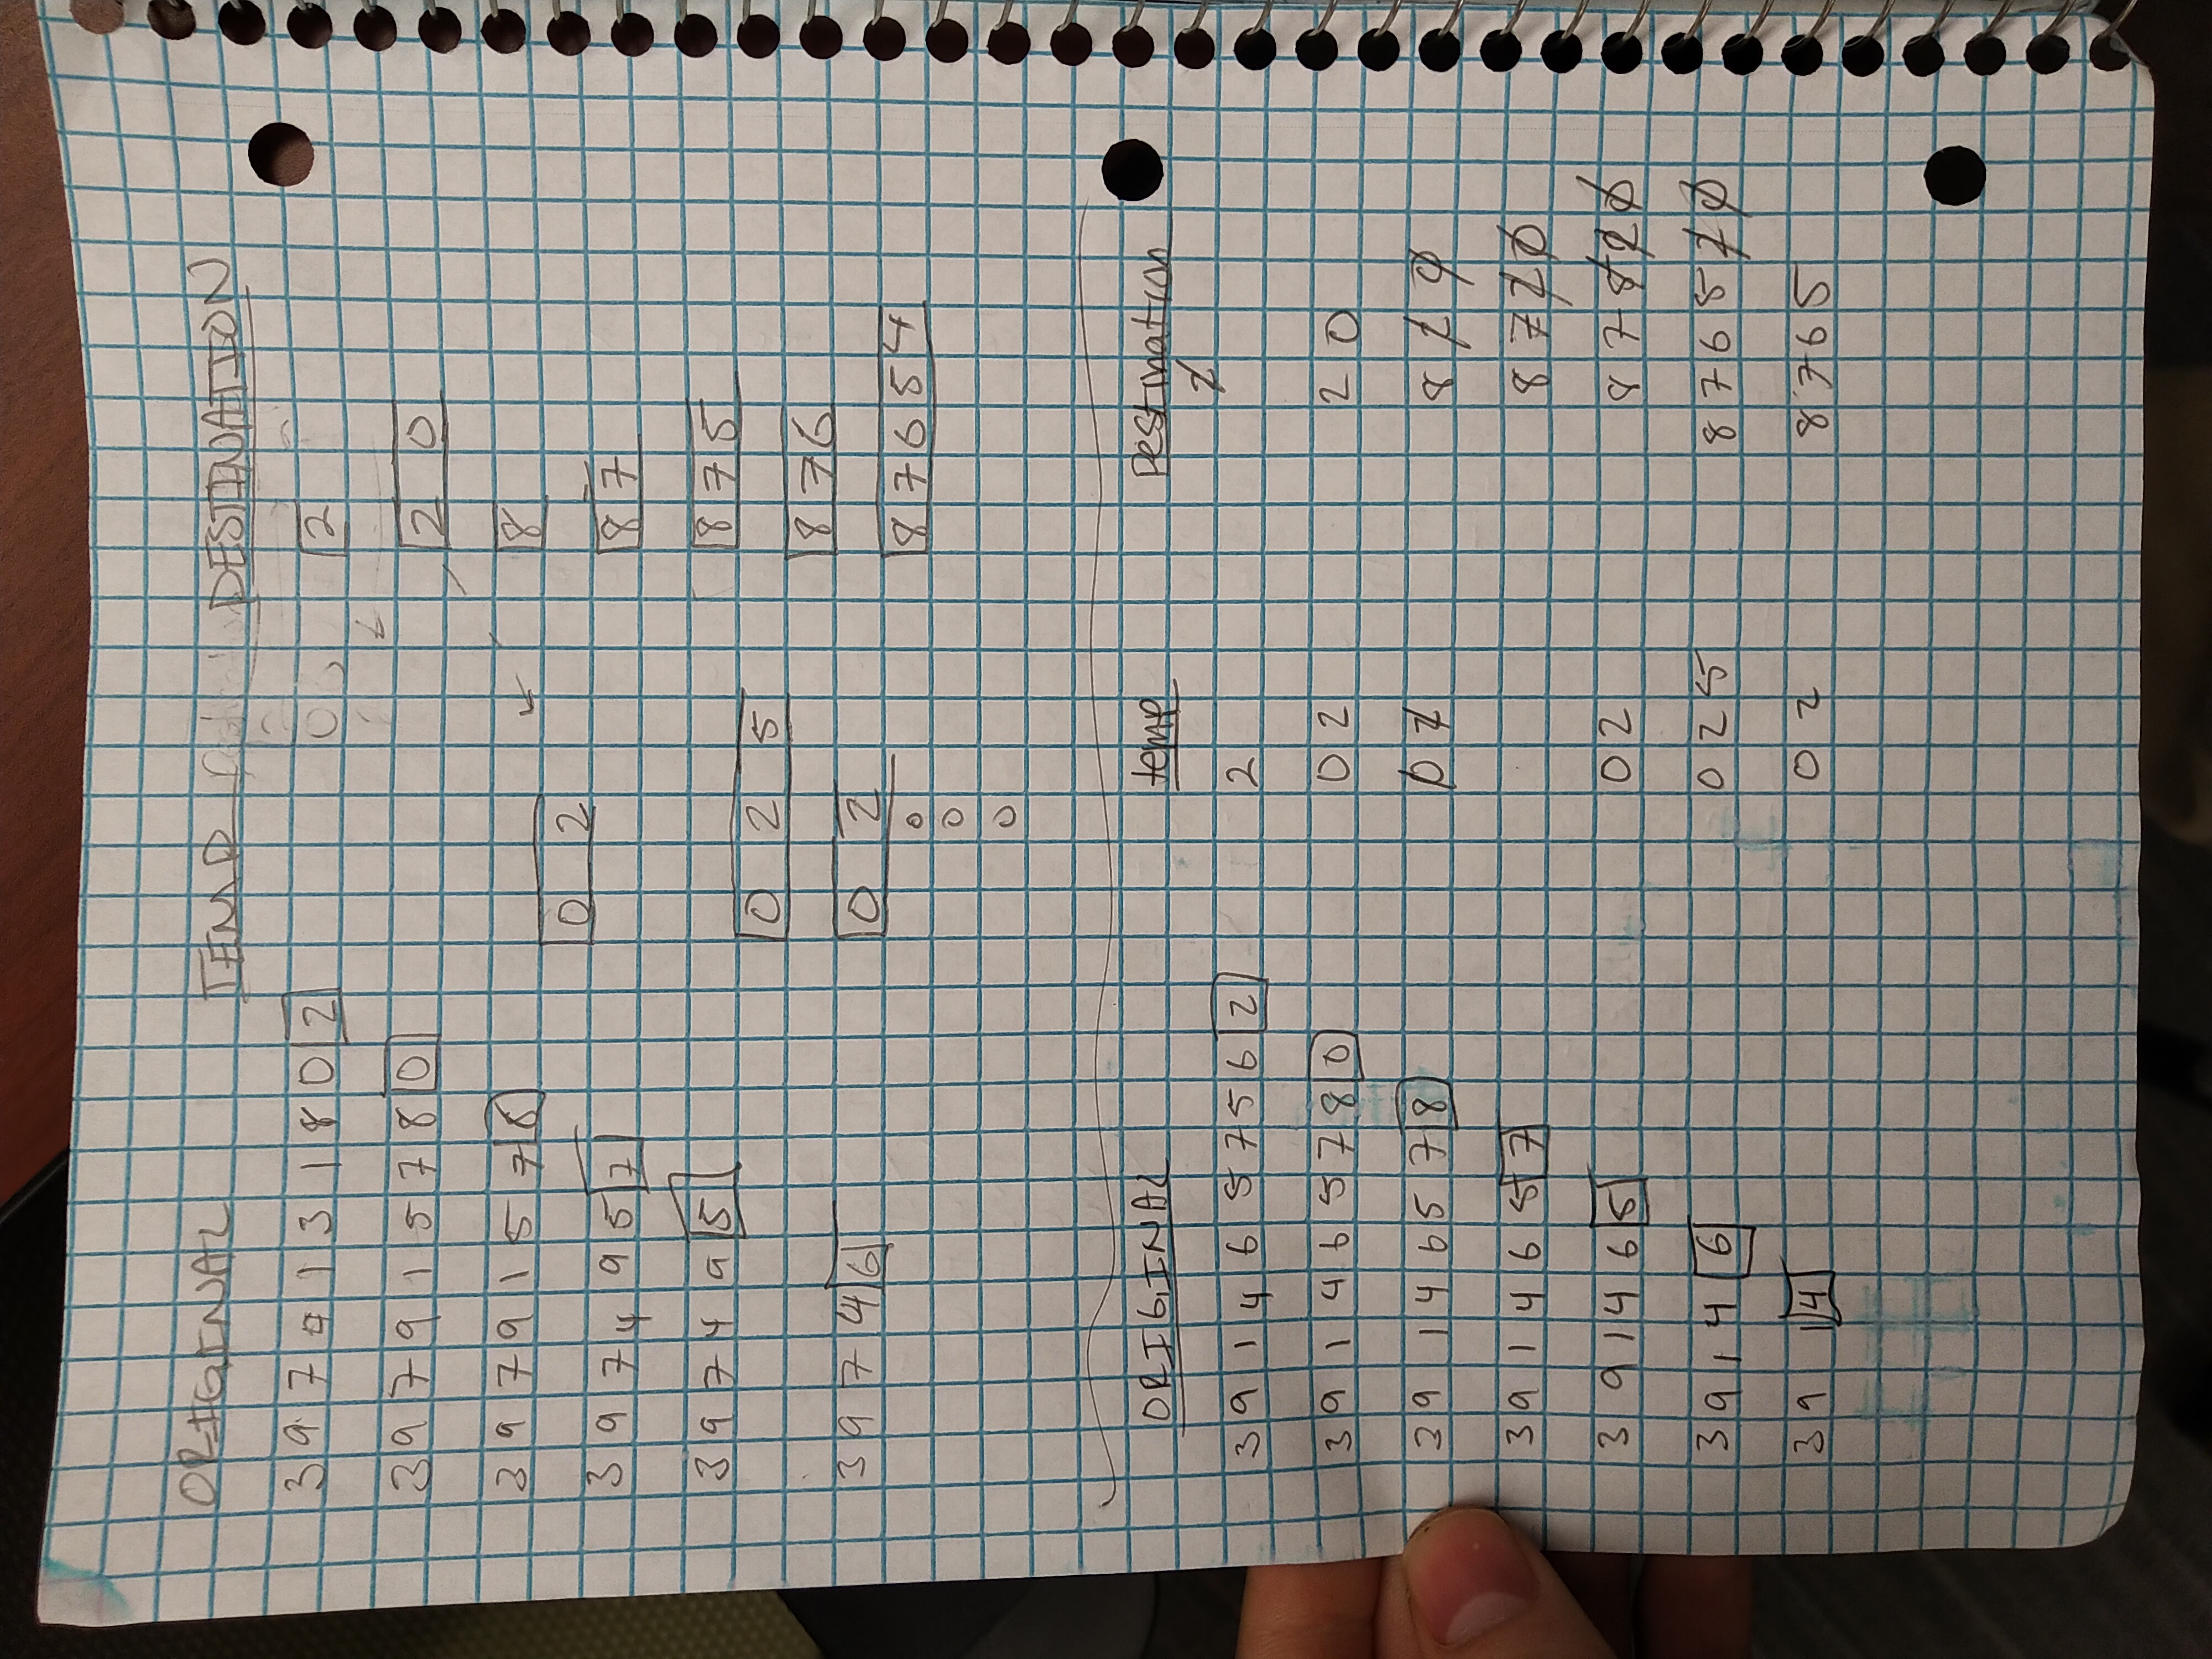 ORIGINAL TEMP DESTINATION
3 9 7 4 1 3 1 8 0 2 2
3 9 7 9 1 5 7 8 0 2 0
3 9 7 9 1 5 7 8 8
0 2
3 9 7 4 9 5 7 8 7
3 9 7 4 9 5 8 7 5
0 2 5
8 7 6
3 9 7 4 6 0 2
8 7 6 5 4
0
0
0
ORIGINAL temp Destination
2
3 9 1 4 6 5 7 5 6 2 2
3 9 1 4 6 5 7 8 0 0 2 2 0
3 9 1 4 6 5 7 8 0 2 8 2 0
3 9 1 4 6 5 7 8 7 2 0
3 9 1 4 6 5 0 2 8 7 8 2 0
3 9 1 4 6 0 2 5 8 7 6 5 2 0
3 9 1 4 0 2 8 7 6 5